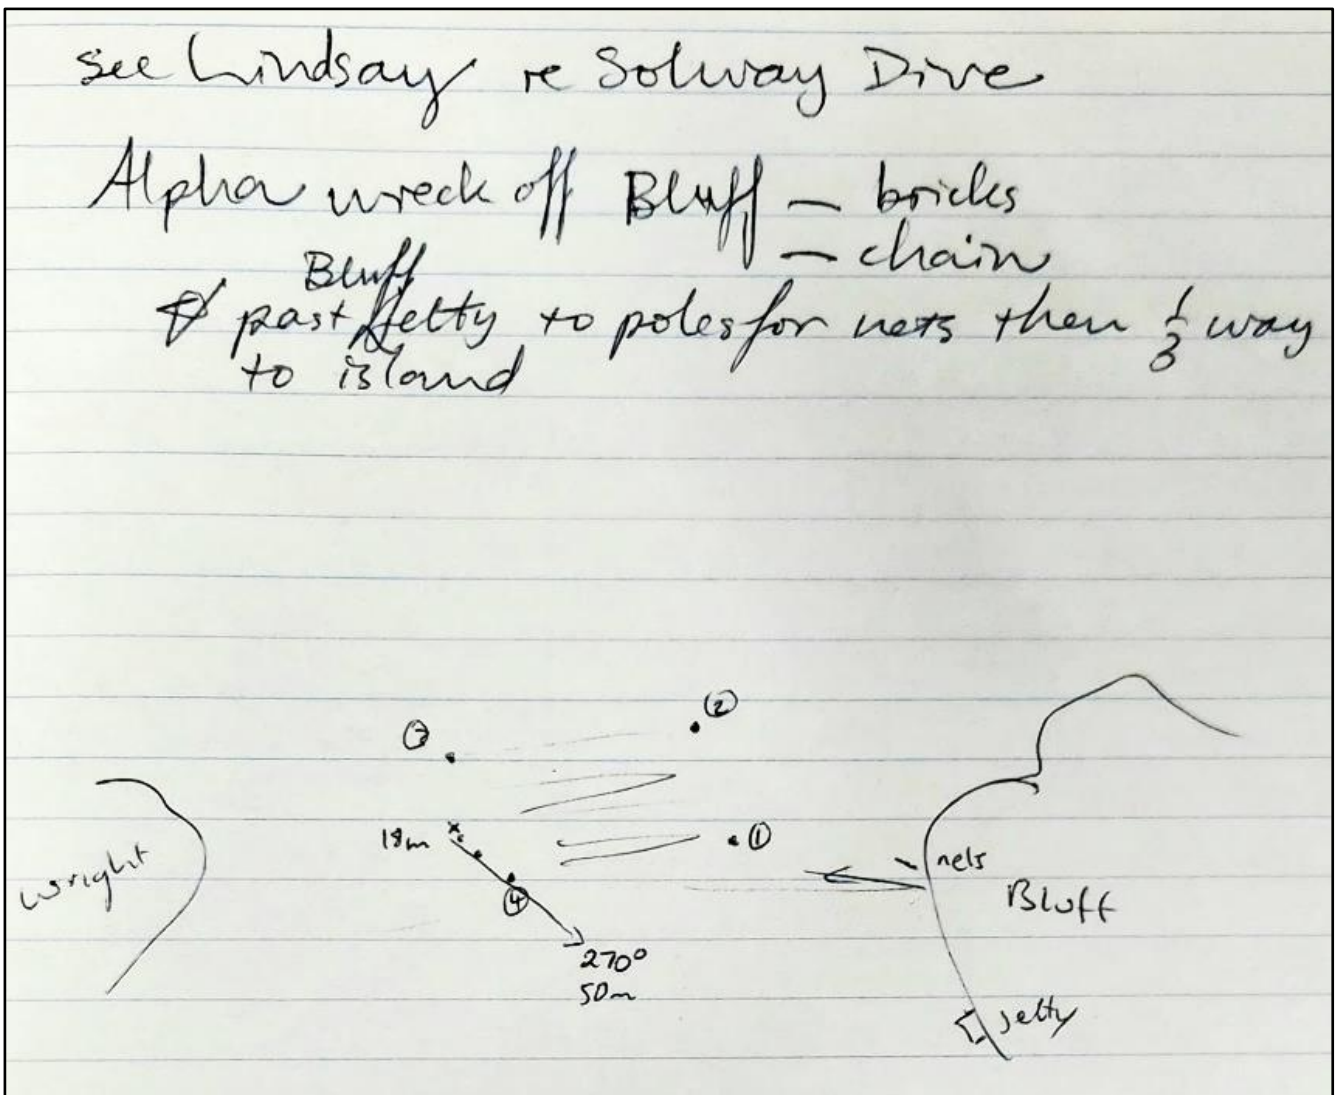 see Lindsay re Solway Dive
Alpha wreck off Bluff — bricks
— chain
Bluff
past Jetty to poles for nets then 1/3 way
to island
②
③
18m
①
wright
nets
④
Bluff
270°
50m
Jetty